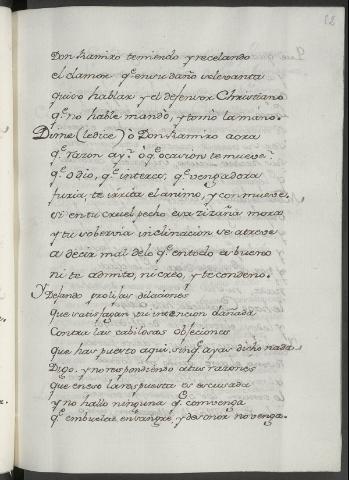 82
Don Ramiro temiendo y recelando
el clamor qe. en su daño se levanta
quiso hablar y el defensor Christiano
qe. no hable mando, y tomo la mano.
Dime (le dice) ò Don Ramiro aora
qe. razon ay? ò qe. ocasion te mueve?
qe. odio, qe. interes, qe. vengadora
furia, te irrita el animo, y conmueve.
si en tu cruel pecho esa zizaña mora
y tu sobervia inclinacion se atreve
a decir mal delo qe. en todo es bueno
ni te admito, ni creo, y te condeno.
Y Dejando prolijas dilaciones
que satisfagan su intencion dañada
Contra las cabilosas objeciones
que has puesto aqui, sin qe. ayas dicho nada
Digo. y no respondiendo atus razones
que en eso la respuesta es escusada
y no hallo ninguna qe. convenga
qe. embuelta en sangre, y desonor no venga.